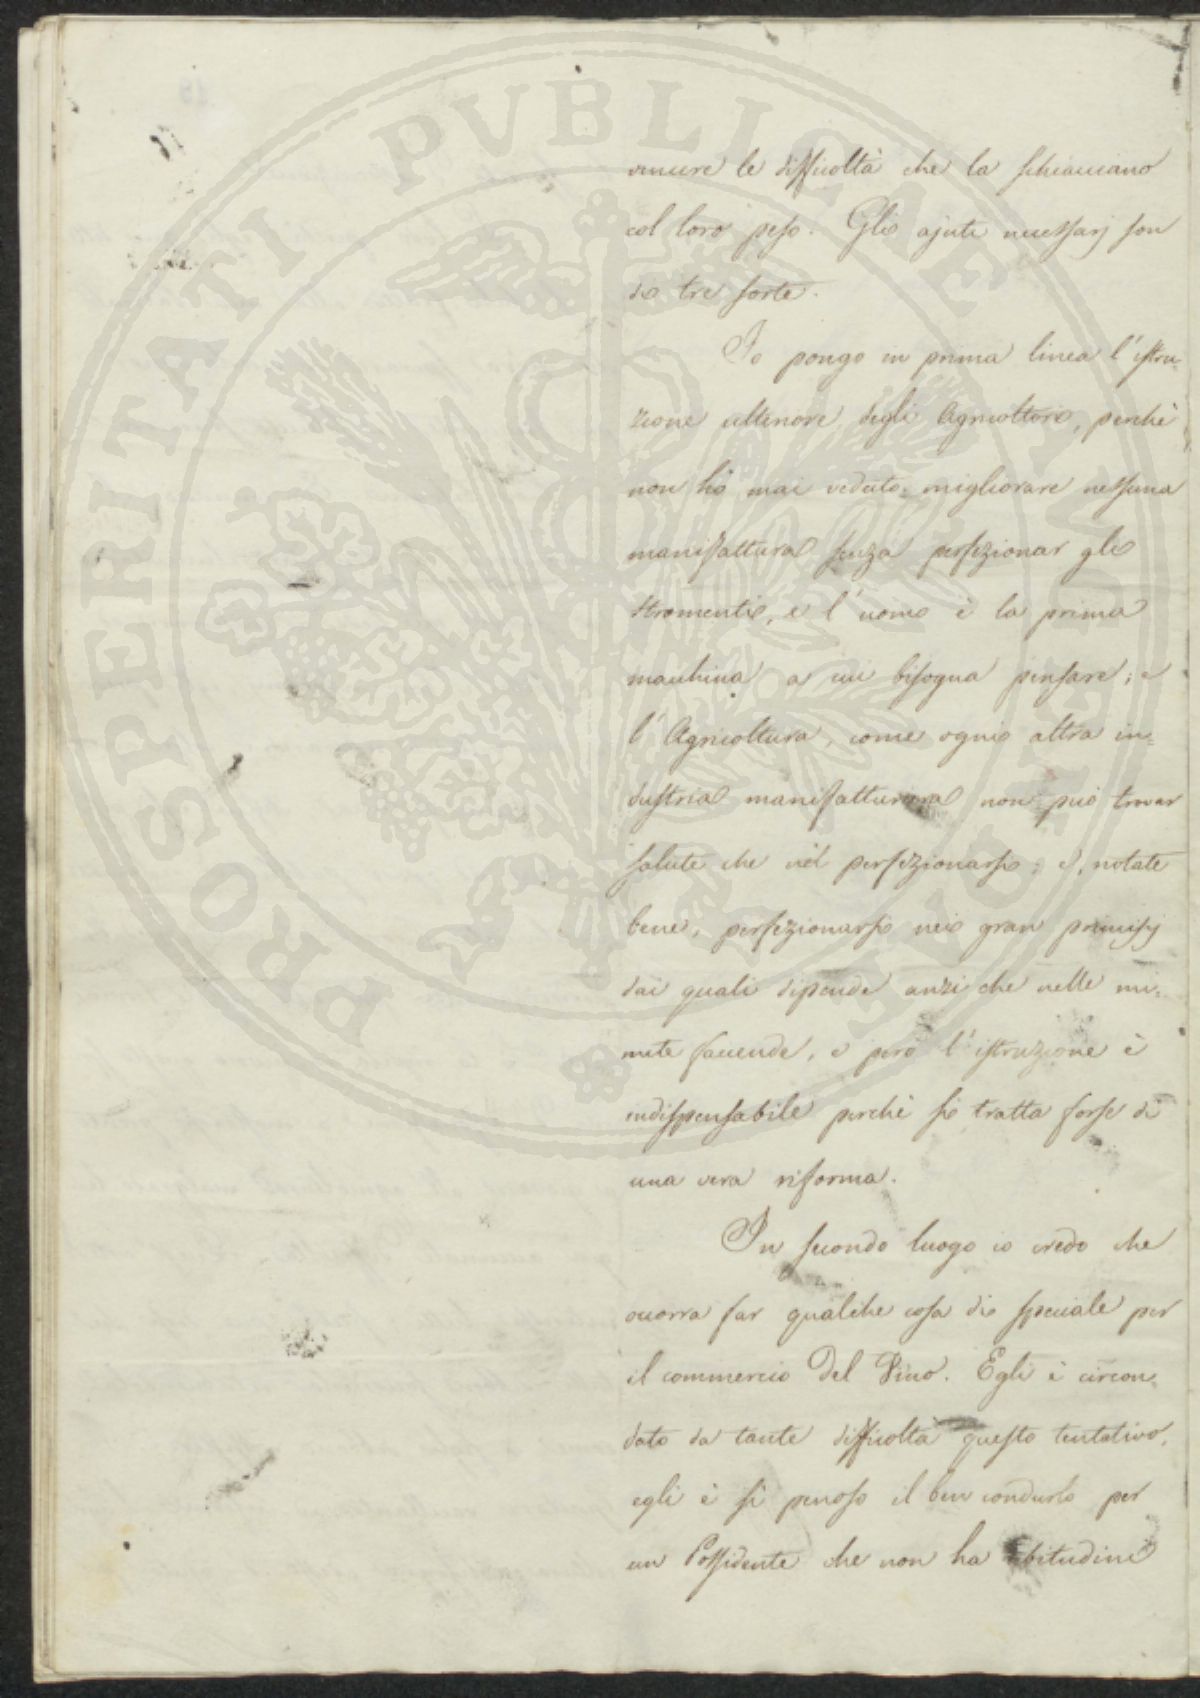 PROSPERITATI PVBLICAE AVGENDAE
vincere le difficoltà che la schiacciano
col loro peso. Gli ajuti necessarj son
di tre sorte.
Io pongo in prima linea l'istru-
zione ulteriore degli Agricoltori, perchè
non hò mai veduto migliorare nessuna
manifattura senza perfezionar gli
stromenti, e l'uomo è la prima
macchina a cui bisogna pensare; e
l'Agricoltura, come ogni altra in=
dustria manifatturiera non può trovar
salute che nel perfezionarsi; e, notate
bene, perfezionarsi nei gran principj
dai quali dipende anzi che nelle mi=
nute faccende, e però l'istruzione è
indispensabile perchè si tratta forse di
una vera riforma.
In secondo luogo io credo che
occorra far qualche cosa di speciale per
il commercio del Vino. Egli è circon=
dato da tante difficoltà questo tentativo,
egli è sì penoso il ben condurlo per
un Possidente che non ha abitudini